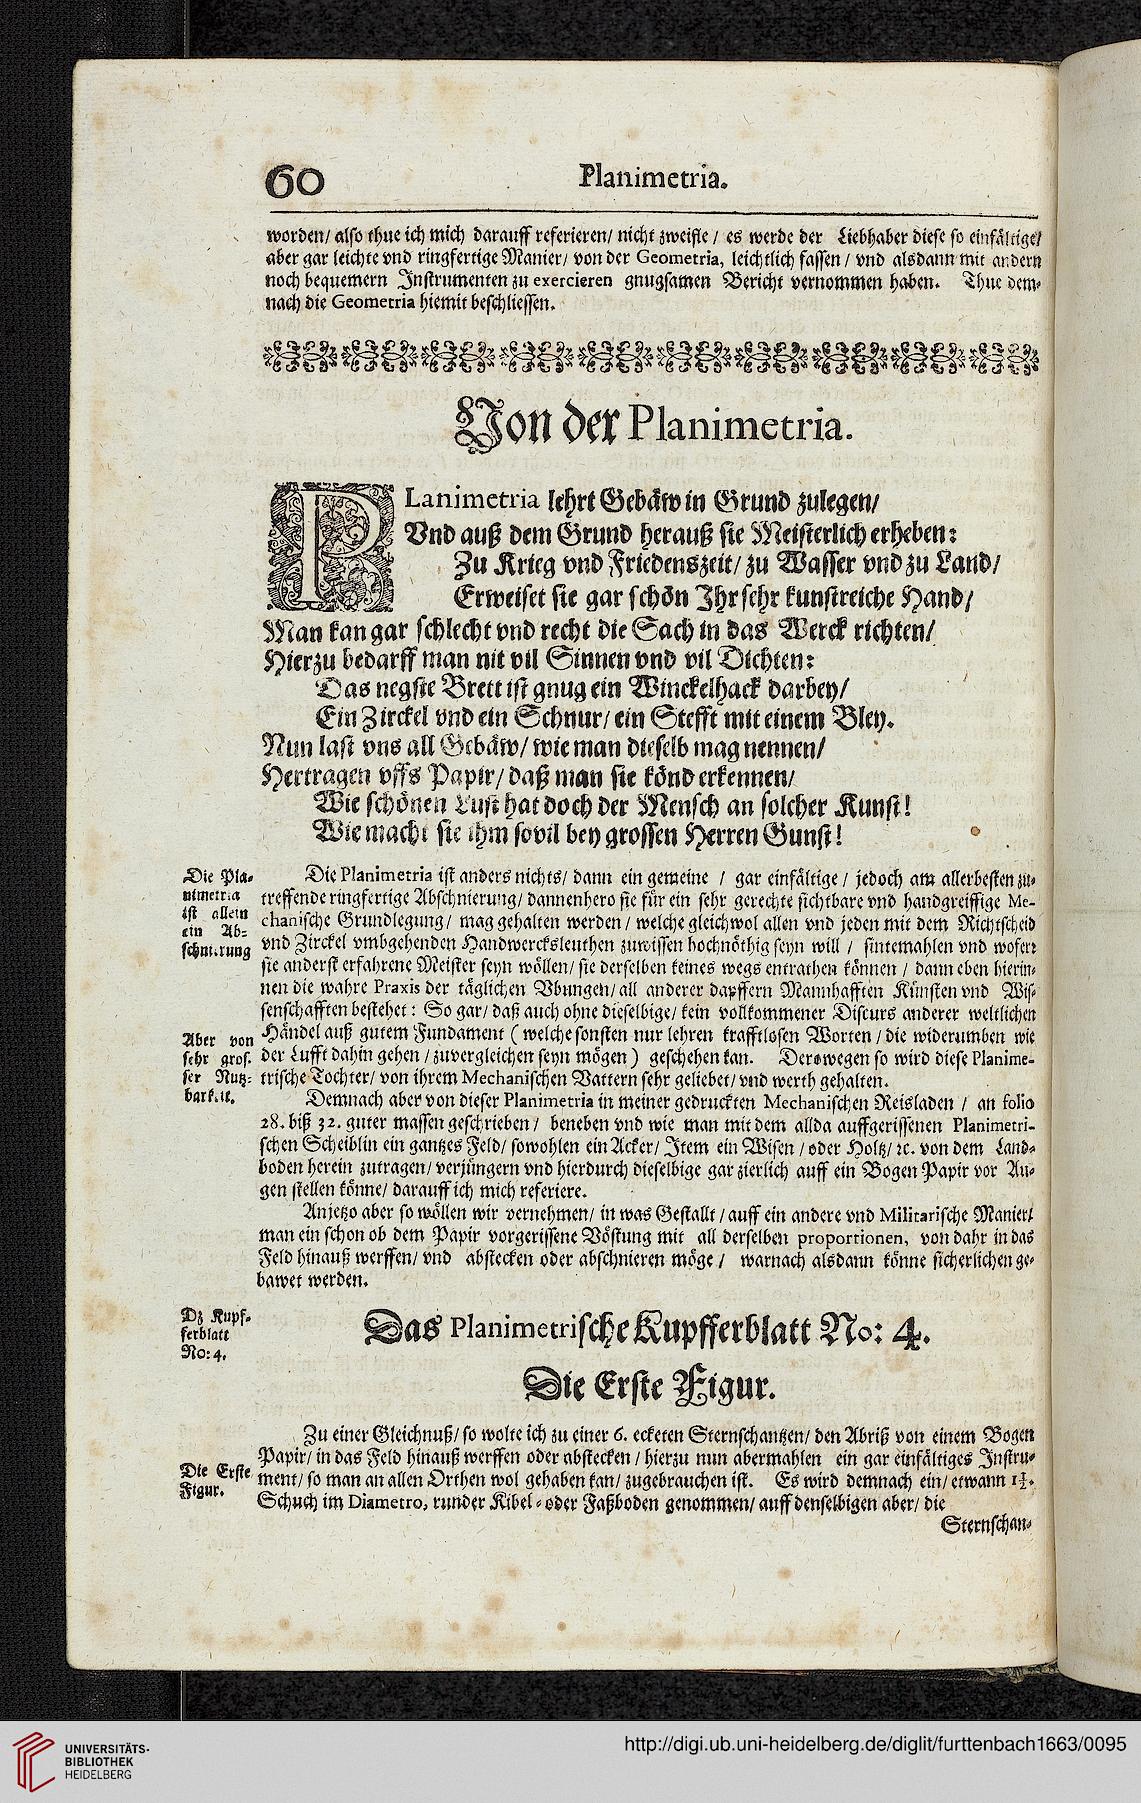 60 Planimetria.
worden/ also thue ich mich darauff referieren/ nicht zweifle / es werde der Liebhaber diese so einfältige/
aber gar leichte vnd ringfertige Manier/ von der Geometria, leichtlich fassen / vnd alsdann mit andern
noch bequemern Instrumenten zu exercieren gnugsamen Bericht vernommen haben. Thue dem-
nach die Geometria hiemit beschliessen.
Von der Planimetria.
PLanimetria lehrt Gebäw in Grund zulegen/
Vnd auß dem Grund herauß sie Meisterlich erheben:
Zu Krieg vnd Friedenszeit/ zu Wasser vnd zu Land/
Erweiset sie gar schön Ihr sehr kunstreiche Hand/
Man kan gar schlecht vnd recht die Sach in das Werck richten/
Hierzu bedarff man nit vil Sinnen vnd vil Dichten:
Das negste Brett ist gnug ein Winckelhack darbey/
Ein Zirckel vnd ein Schnur/ ein Stefft mit einem Bley.
Nun last vns all Gebäw/ wie man dieselb mag nennen/
Hertragen vffs Papir/ daß man sie könd erkennen/
Wie schönen Lust hat doch der Mensch an solcher Kunst!
Wie macht sie ihm sovil bey grossen Herren Gunst!
Die Pla-
nimetria
ist allein
ein Ab-
schnierung
Die Planimetria ist anders nichts/ dann ein gemeine / gar einfältige / jedoch am allerbesten zu-
treffende ringfertige Abschnierung/ dannenhero sie für ein sehr gerechte sichtbare vnd handgreiffige Me-
chanische Grundlegung/ mag gehalten werden / welche gleichwol allen vnd jeden mit dem Richtscheid
vnd Zirckel vmbgehenden Handwercksleuthen zuwissen hochnöthig seyn will / sintemahlen vnd wofern
sie anderst erfahrene Meister seyn wöllen/ sie derselben keines wegs entrathen können / dann eben hierin-
nen die wahre Praxis der täglichen Vbungen/ all anderer dapffern Mannhafften Künsten vnd Wis-
senschafften bestehet: So gar/ daß auch ohne dieselbige/ kein vollkommener Discurs anderer weltlichen
Aber von
sehr gros-
ser Nutz-
barkeit.
Händel auß gutem Fundament ( welche sonsten nur lehren krafftlosen Worten / die widerumben wie
der Lufft dahin gehen / zuvergleichen seyn mögen ) geschehen kan. Derowegen so wird diese Planime-
trische Tochter/ von ihrem Mechanischen Vattern sehr geliebet/ vnd werth gehalten.
Demnach aber von dieser Planimetria in meiner gedruckten Mechanischen Reisladen / an folio
28. biß 32. guter massen geschrieben / beneben vnd wie man mit dem allda auffgerissenen Planimetri-
schen Scheiblin ein gantzes Feld/ sowohlen ein Acker/ Item ein Wisen / oder Holtz/ ꝛc. von dem Land-
boden herein zutragen/ verjüngern vnd hierdurch dieselbige gar zierlich auff ein Bogen Papir vor Au-
gen stellen könne/ darauff ich mich referiere.
Anjetzo aber so wöllen wir vernehmen/ in was Gestallt / auff ein andere vnd Militarische Manier/
man ein schon ob dem Papir vorgerissene Vöstung mit all derselben proportionen, von dahr in das
Feld hinauß werffen/ vnd abstecken oder abschnieren möge / warnach alsdann könne sicherlichen ge-
bawet werden.
Dz Kupf-
ferblatt
No: 4.
Das Planimetrische Kupfferblatt No: 4.
Die Erste Figur.
Zu einer Gleichnuß/ so wolte ich zu einer 6. ecketen Sternschantzen/ den Abriß von einem Bogen
Papir/ in das Feld hinauß werffen oder abstecken / hierzu nun abermahlen ein gar einfältiges Instru-
Die Erste
Figur.
ment/ so man an allen Orthen wol gehaben kan/ zugebrauchen ist. Es wird demnach ein/ etwann 1½.
Schuch im Diametro, runder Kibel- oder Faßboden genommen/ auff denselbigen aber/ die
Sternschan-
UNIVERSITÄTS-
BIBLIOTHEK
HEIDELBERG
http://digi.ub.uni-heidelberg.de/diglit/furttenbach1663/0095